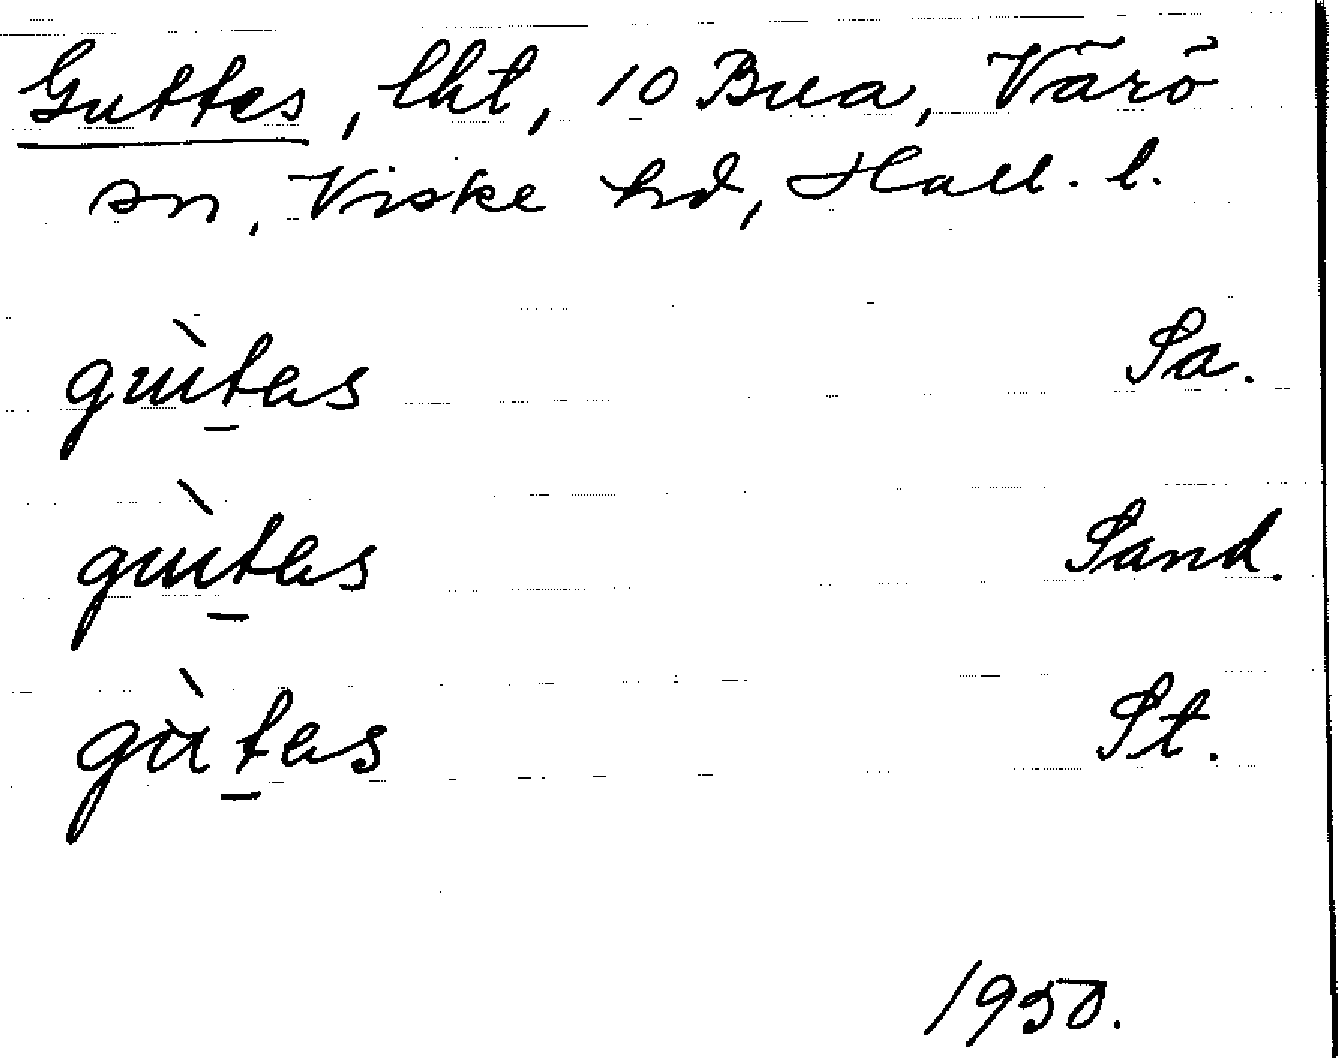 Guttes, lht, 10 Bua, Värö
sn, Viske hd, Hall. l.
gùt̲as Sa.
gùt̲as Sand.
gùt̲as St.
1950.